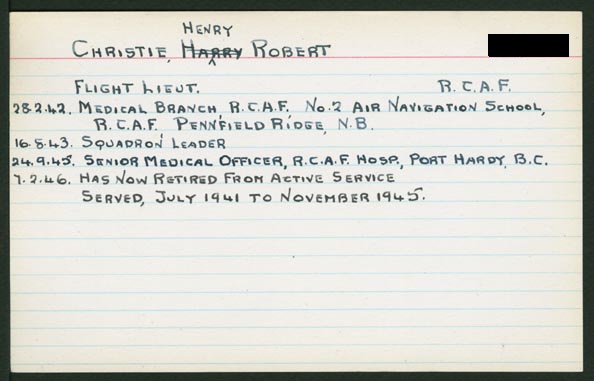 HENRY
CHRISTIE, HARRY ROBERT
FLIGHT LIEUT. R.C.A.F.
28.2.42. MEDICAL BRANCH R.C.A.F. No.2 AIR NAVIGATION SCHOOL,
R.C.A.F. PENNFIELD RIDGE, N.B.
16.8.43. SQUADRON LEADER
24.9.45. SENIOR MEDICAL OFFICER, R.C.A.F. HOSP., PORT HARDY, B.C.
7.2.46. HAS NOW RETIRED FROM ACTIVE SERVICE
SERVED, JULY 1941 TO NOVEMBER 1945.